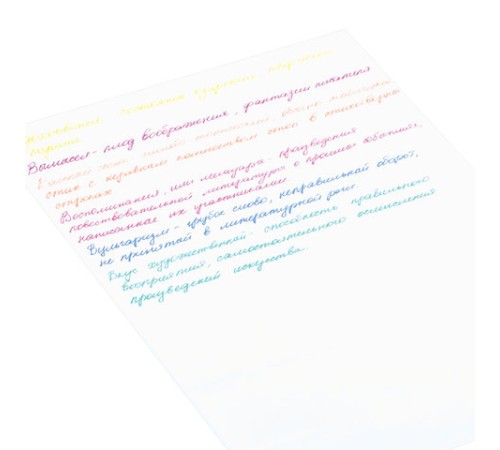 Вымысел - плод воображения, фантазии писателя
стих с неравным количеством стоп в стихотворных
строках
Воспоминания, или мемуары - произведения
повествовательной литературы о прошлых событиях,
написанные их участниками
Вульгаризм - грубое слово, неправильный оборот,
не принятый в литературной речи.
Вкус художественный - способность правильного
восприятия, самостоятельного осмысления
произведений искусства.